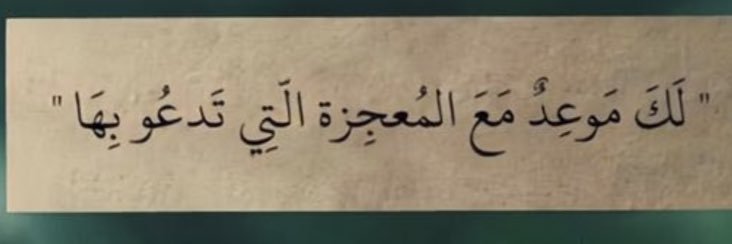 " لَكَ مَوعِدٌ مَعَ المُعجِزة الَّتِي تَدعُو بِهَا "